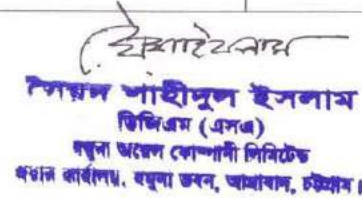 সৈয়দ শাহীদুল ইসলাম
ডিজিএম (এসএ)
যমুনা অয়েল কোম্পানী লিমিটেড
প্রধান কার্যালয়, যমুনা ভবন, আগ্রাবাদ, চট্টগ্রাম।